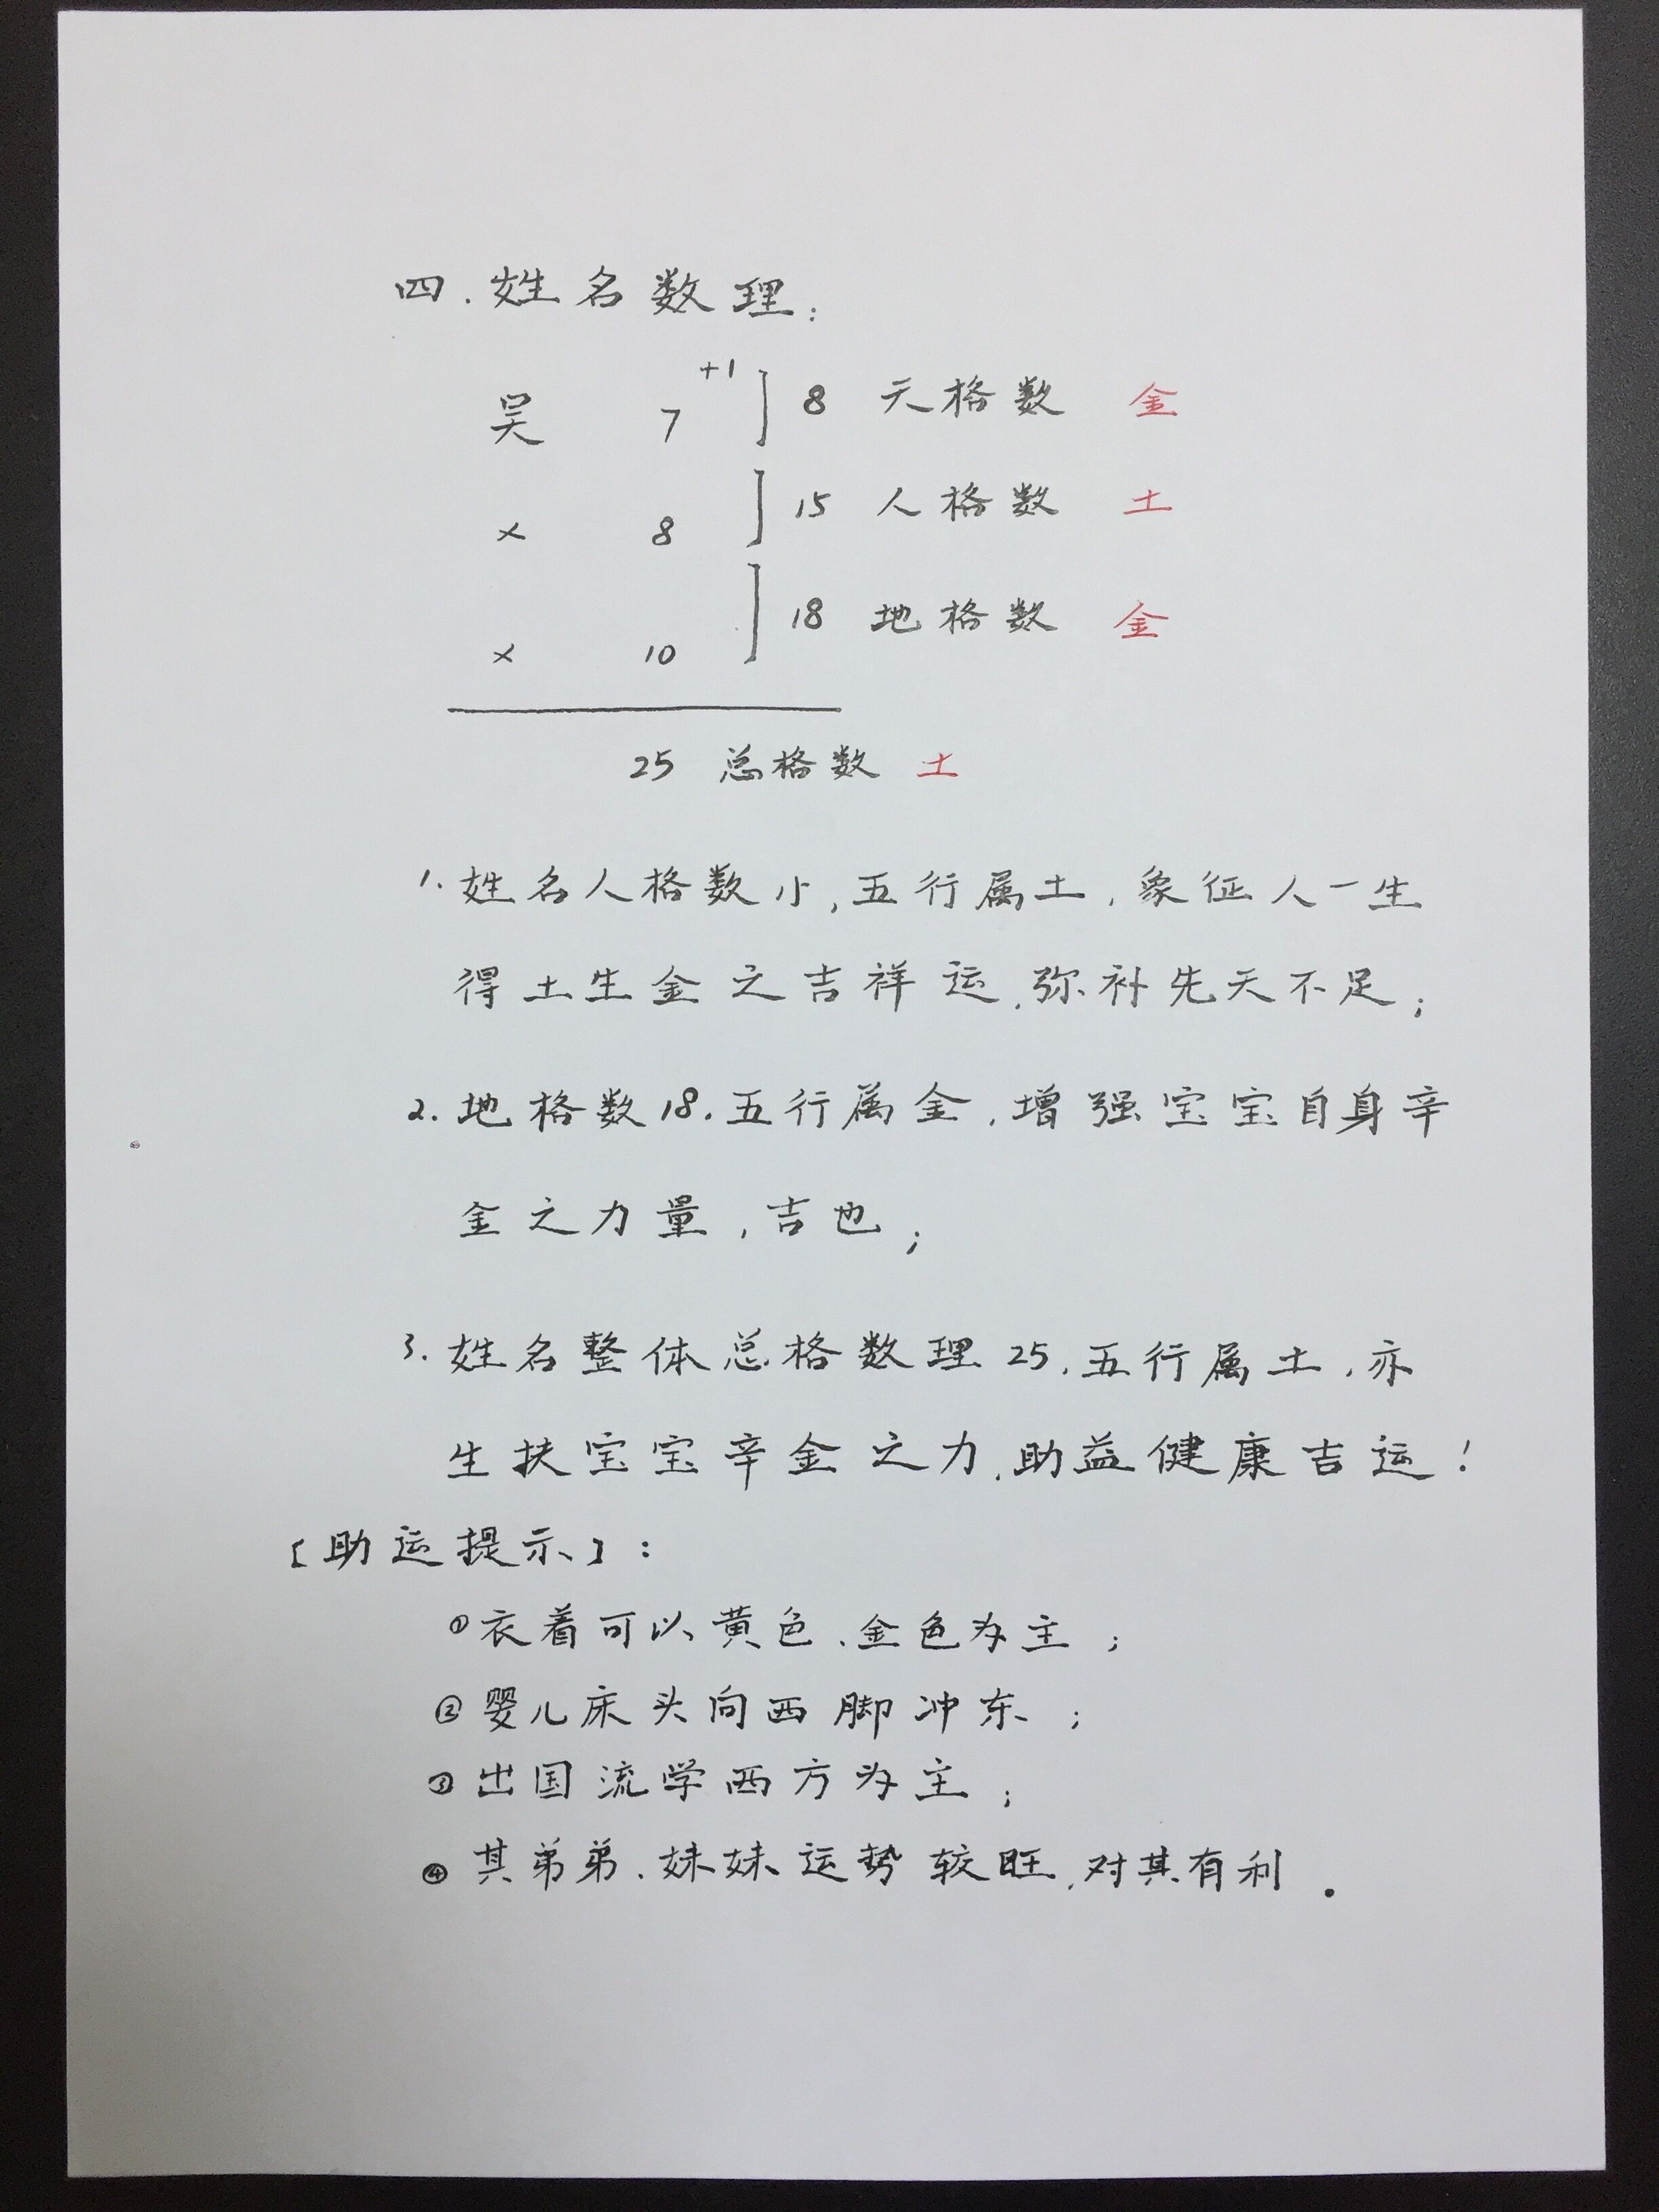 四.姓名数理:
+1
吴 7 ] 8 天格数 金
× 8 ] 15 人格数 土
× 10 ] 18 地格数 金
25 总格数 土
1.姓名人格数小,五行属土,象征人一生
得土生金之吉祥运,弥补先天不足;
2.地格数18.五行属金,增强宝宝自身辛
金之力量,吉也;
3.姓名整体总格数理25,五行属土,亦
生扶宝宝辛金之力,助益健康吉运!
【助运提示】:
①衣着可以黄色、金色为主;
②婴儿床头向西脚冲东;
③出国流学西方为主;
④其弟弟、妹妹运势较旺,对其有利.